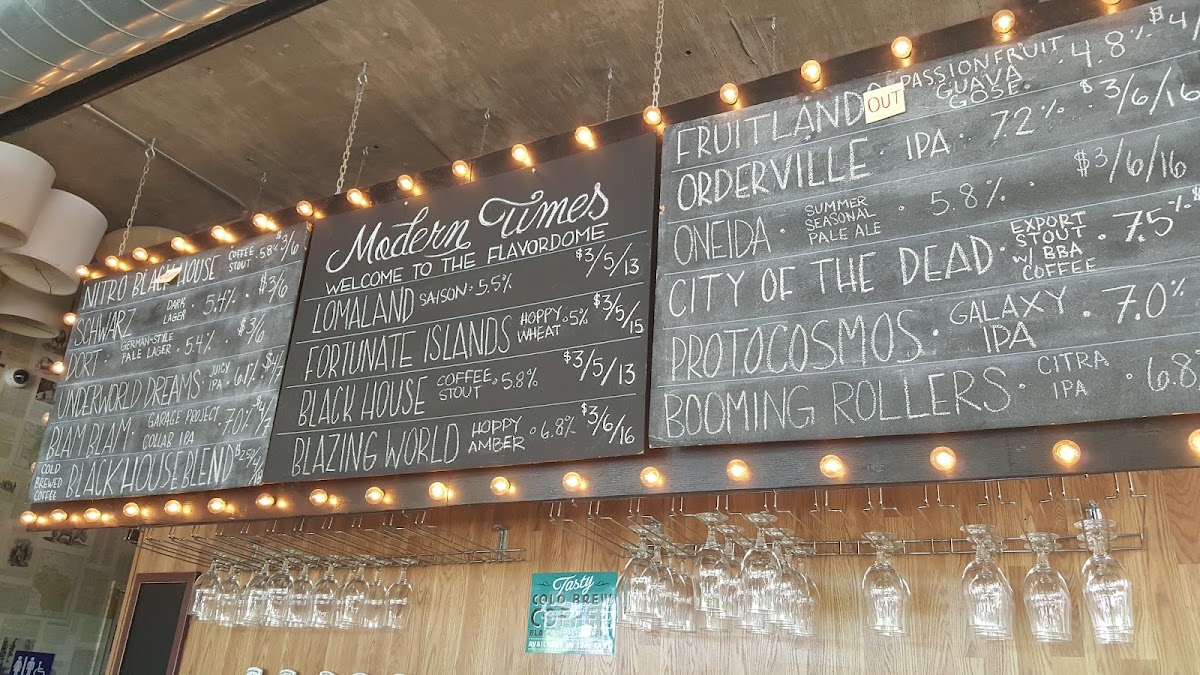 NITRO BLACK HOUSE COFFEE STOUT · 5.8% $3/6
SCHWARZ DARK LAGER · 5.4% · $3/6
DORT · GERMAN-STYLE PALE LAGER · 5.4% · $3/6
UNDERWORLD DREAMS · JUICY IPA · 6.8% · $4/7
BLAM BLAM · GARAGE PROJECT COLLAB IPA 7.0% $4/7
COLD BREWED COFFEE BLACK HOUSE BLEND
Modern Times
WELCOME TO THE FLAVORDOME
LOMALAND SAISON · 5.5% $3/5/13
FORTUNATE ISLANDS HOPPY WHEAT · 5% $3/5/15
BLACK HOUSE COFFEE STOUT · 5.8% $3/5/13
BLAZING WORLD HOPPY AMBER · 6.8% $3/6/16
FRUITLANDS OUT PASSIONFRUIT GUAVA GOSE · 4.8% $4/
ORDERVILLE · IPA · 7.2% · $3/6/16
ONEIDA · SUMMER SEASONAL PALE ALE · 5.8% · $3/6/16
CITY OF THE DEAD · EXPORT STOUT W/ BBA COFFEE · 7.5% ·
PROTOCOSMOS · GALAXY IPA · 7.0%
BOOMING ROLLERS · CITRA IPA · 6.8
Tasty
COLD BREW
COFFEE